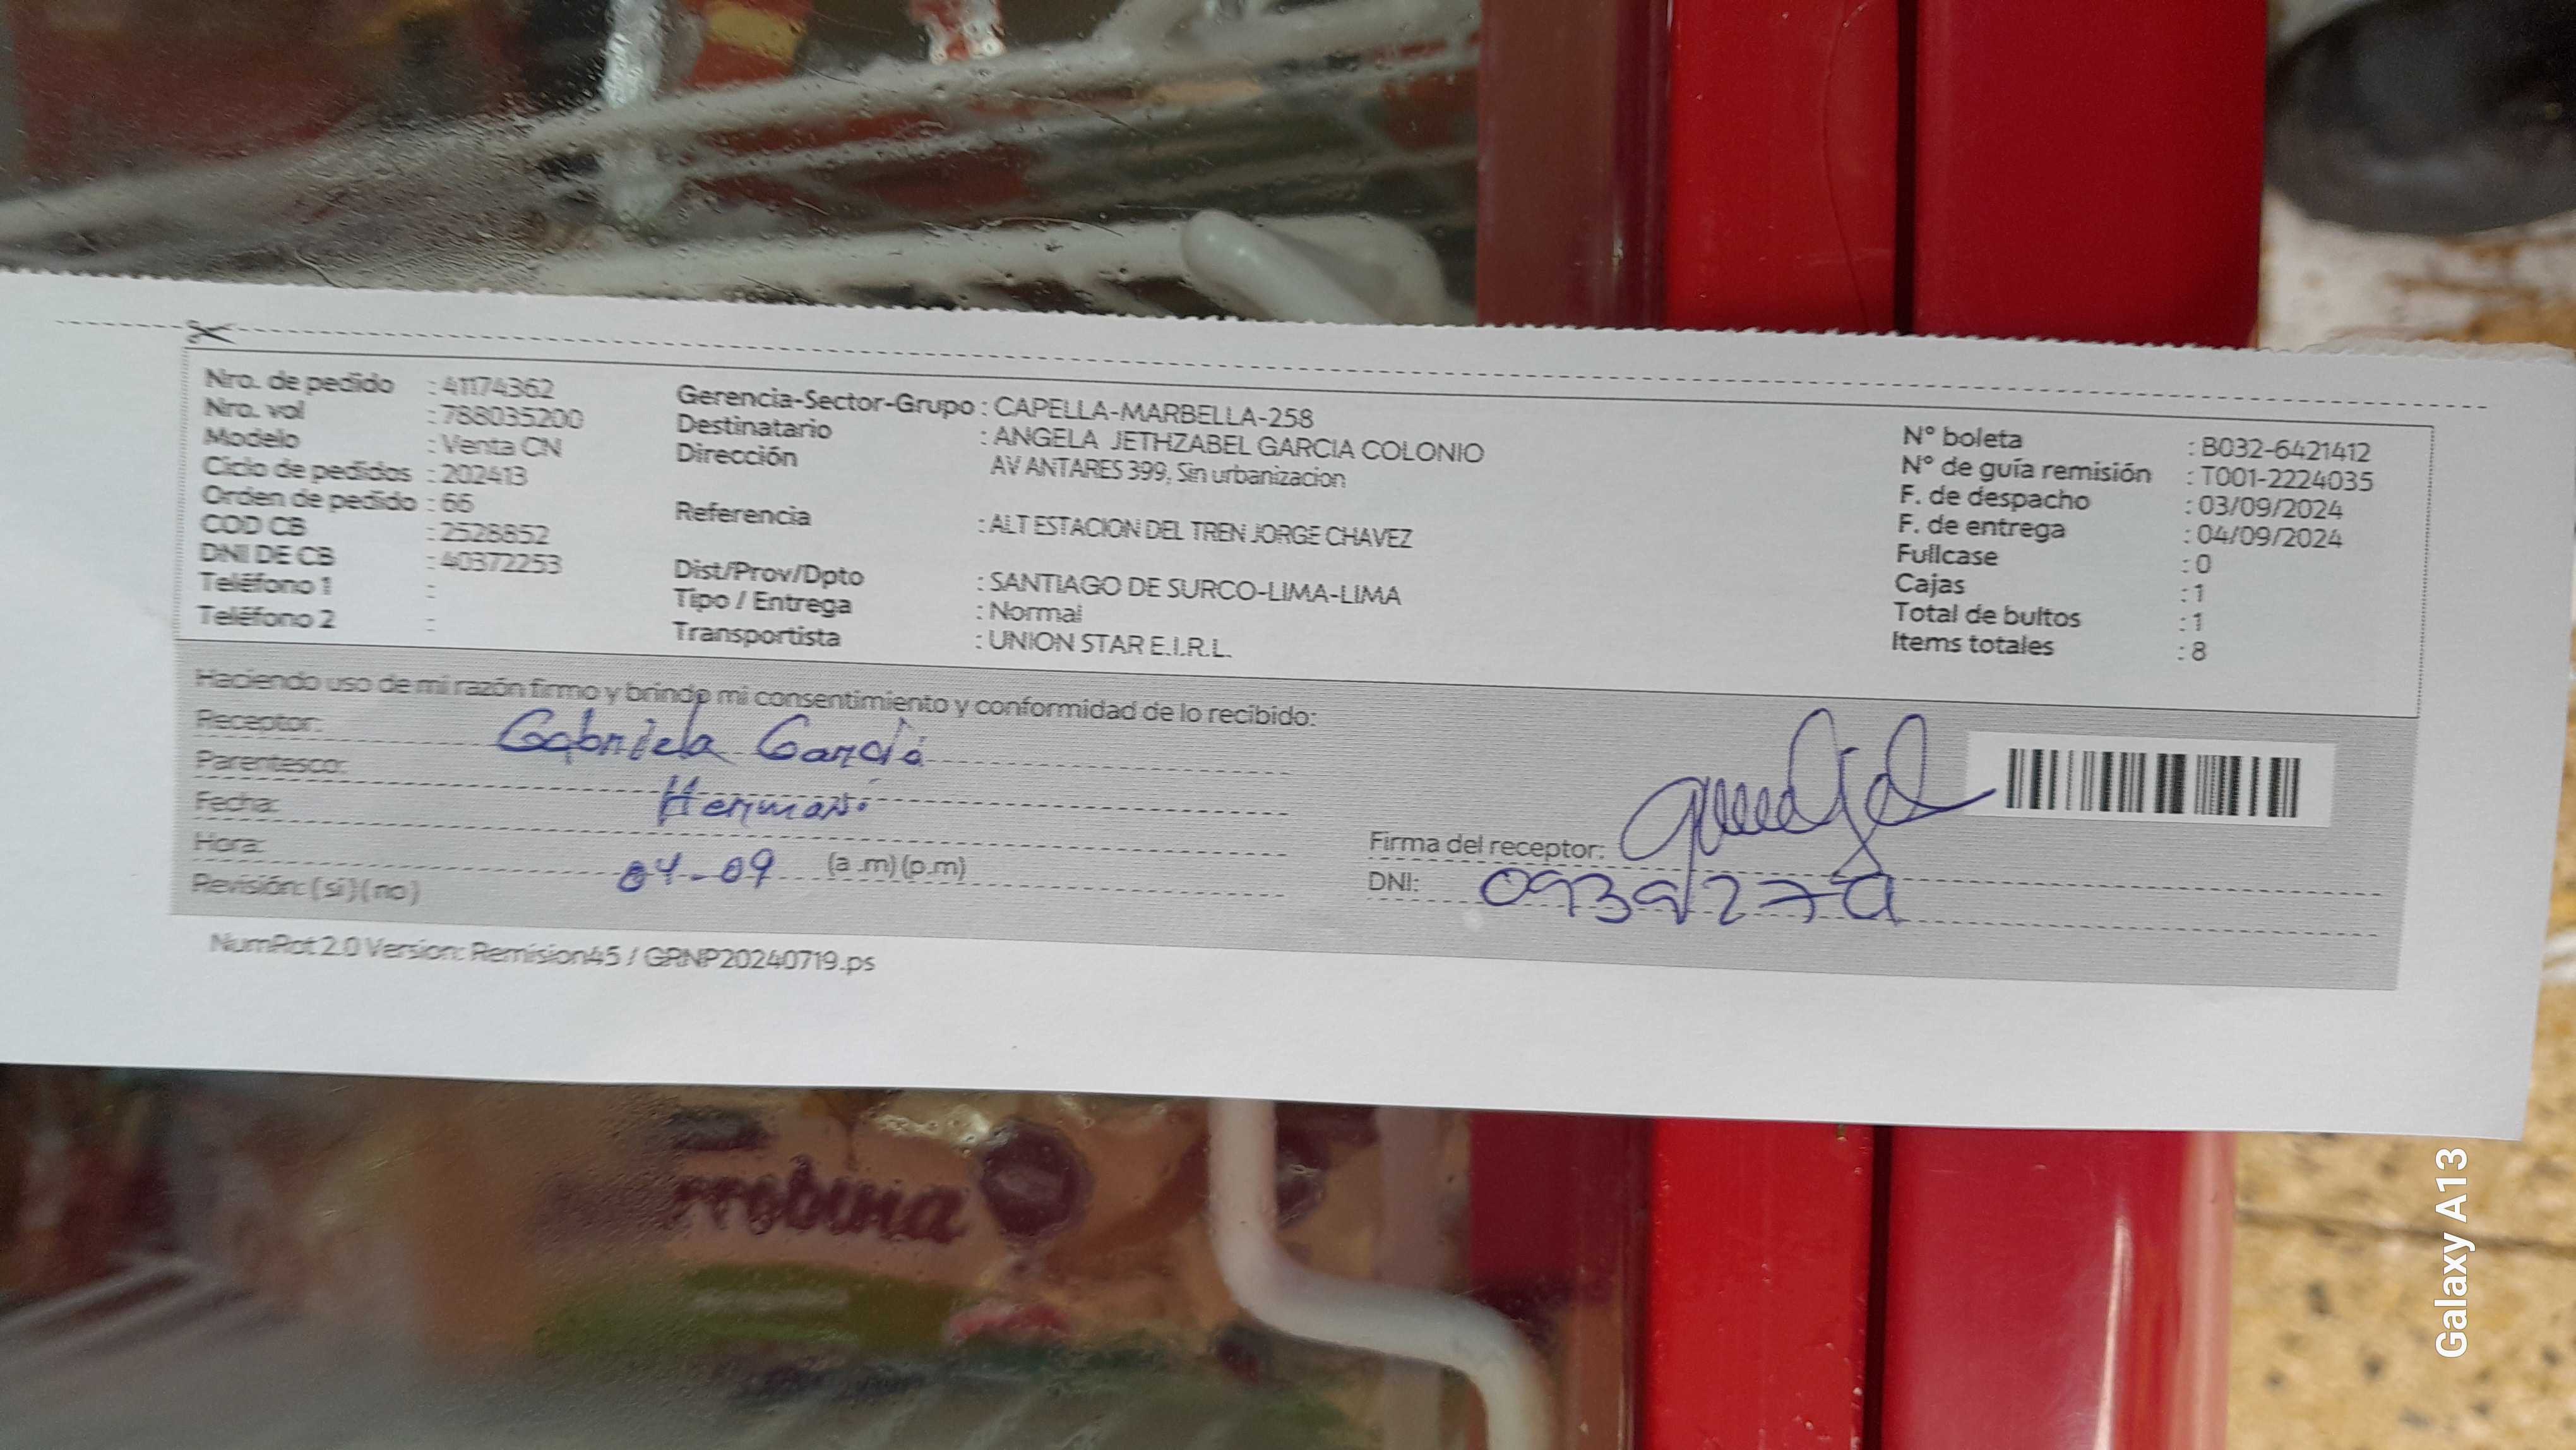 Nro. de pedido : 41174362
Nro. vol : 788035200
Modelo : Venta CN
Ciclo de pedidos : 202413
Orden de pedido : 66
COD CB : 2528852
DNI DE CB : 40372253
Teléfono 1 :
Teléfono 2 :
Gerencia-Sector-Grupo : CAPELLA-MARBELLA-258
Destinatario : ANGELA JETHZABEL GARCIA COLONIO
Dirección AV ANTARES 399, Sin urbanizacion
Referencia : ALT ESTACION DEL TREN JORGE CHAVEZ
Dist/Prov/Dpto : SANTIAGO DE SURCO-LIMA-LIMA
Tipo / Entrega : Normal
Transportista : UNION STAR E.I.R.L.
N° boleta : B032-6421412
N° de guía remisión : T001-2224035
F. de despacho : 03/09/2024
F. de entrega : 04/09/2024
Fullcase : 0
Cajas : 1
Total de bultos : 1
Items totales : 8
Haciendo uso de mi razón firmo y brindo mi consentimiento y conformidad de lo recibido:
Receptor: Gabriela Garcia
Parentesco: Hermana
Fecha:
Hora: 04-09 (a .m) (p.m)
Revisión: ( si ) ( no )
Firma del receptor:
DNI:
NumRot 2.0 Version: Remision45 / GRNP20240719.ps
rrobina
Galaxy A13